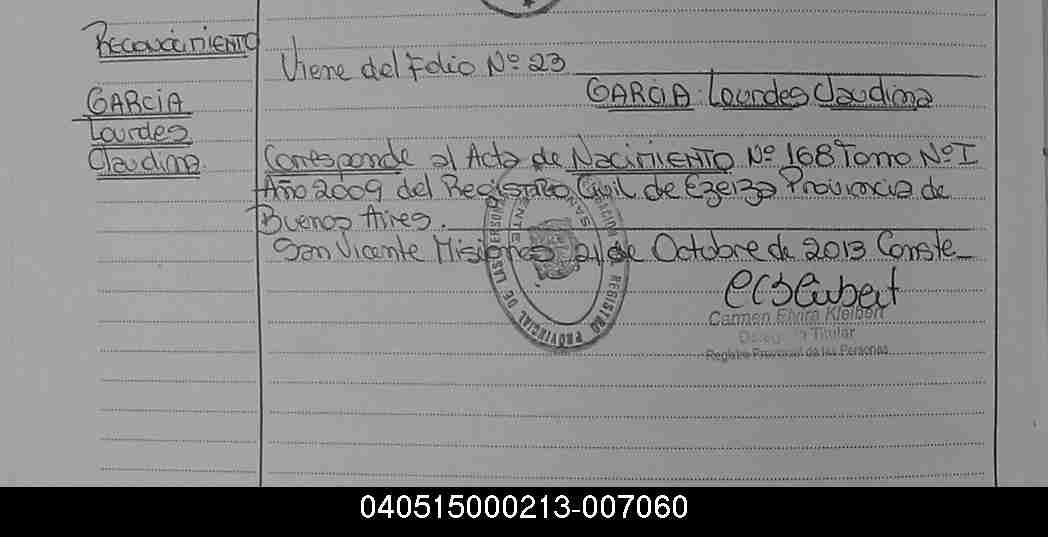 Reconocimiento
GARCIA
Lourdes
Claudina
Viene del Folio Nº 23
GARCIA Lourdes Claudina
Corresponde al Acta de Nacimiento Nº 168 Tomo Nº I
Año 2009 del Registro Civil de Ezeiza Provincia de
Buenos Aires.
San Vicente Misiones 21 de Octubre de 2013 Conste
Carmen Elvira Kleibert
Titular
Registro Provincial de las Personas
REGISTRO PROVINCIAL DE LAS PERSONAS
SAN VICENTE
040515000213-007060